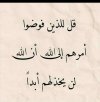 قل للذين فوضوا
أمرهم إلى الله أن الله
لن يخذلهم أبداً